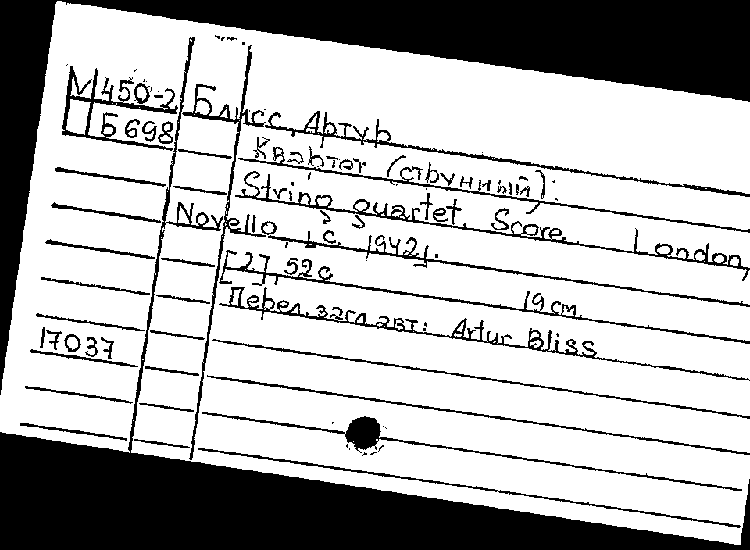 М 450-2 Блисс, Артур
Б 698
Квартет (струнный):
String quartet. Score. London,
Novello, c. 1942].
[2], 52 с 19 см.
Перед. загл. авт: Artur Bliss
17037